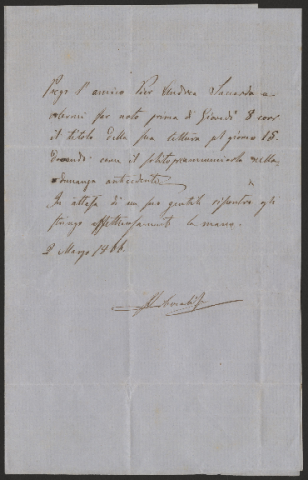 Prego l'amico Pier Andrea Saccardo a
volermi far noto prima di Giovedì 8 corr
il titolo della sua lettura pel giorno 15.
dovendo come il solito preannunciarlo nella
adunanza antecedente
In attesa di un sua gentile risposta gli
stringo affettuosamente la mano.
2 Marzo 1866.